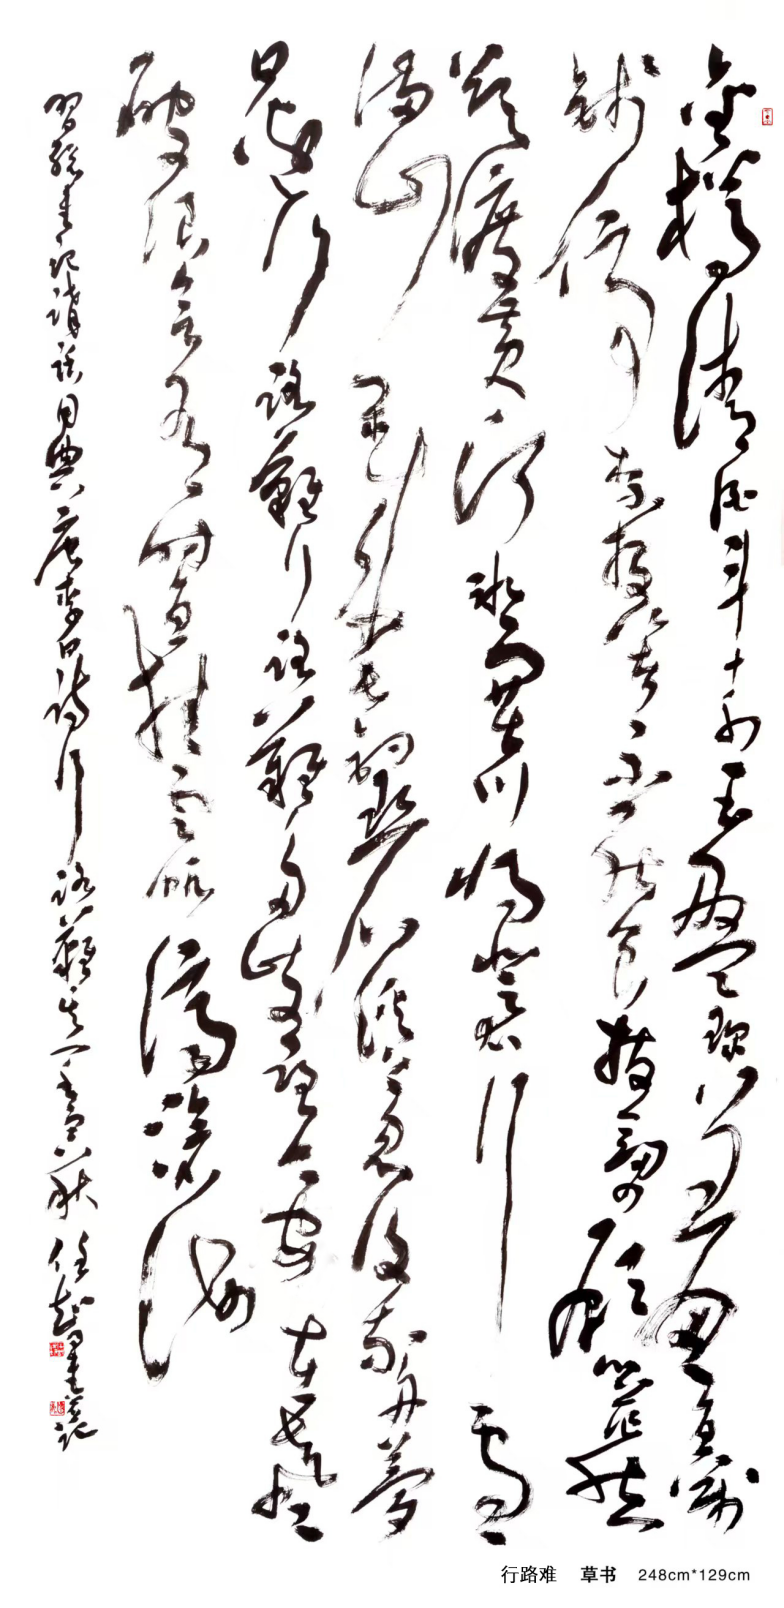 金樽清酒斗十千玉盘珍羞直万
钱停杯投箸不能食拔剑四顾心茫然
欲渡黄河冰塞川将登太行雪
满山闲来垂钓碧溪上忽复乘舟梦
日边行路难行路难多歧路今安在长风
破浪会有时直挂云帆济沧海
唐李白诗行路难其一
行路难 草书 248cm*129cm